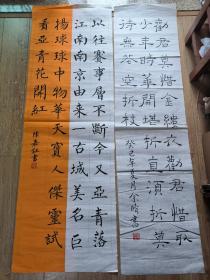 勸君莫惜金縷衣勸君惜取
少年時花開堪折直須折莫
待無花空折枝
癸巳年夏月余晴書
以往賽事層不斷今又亞青落
江南南京一古城美名巨
揚球球中物華天寶人傑靈試
看亞青花開紅
陸嘉書